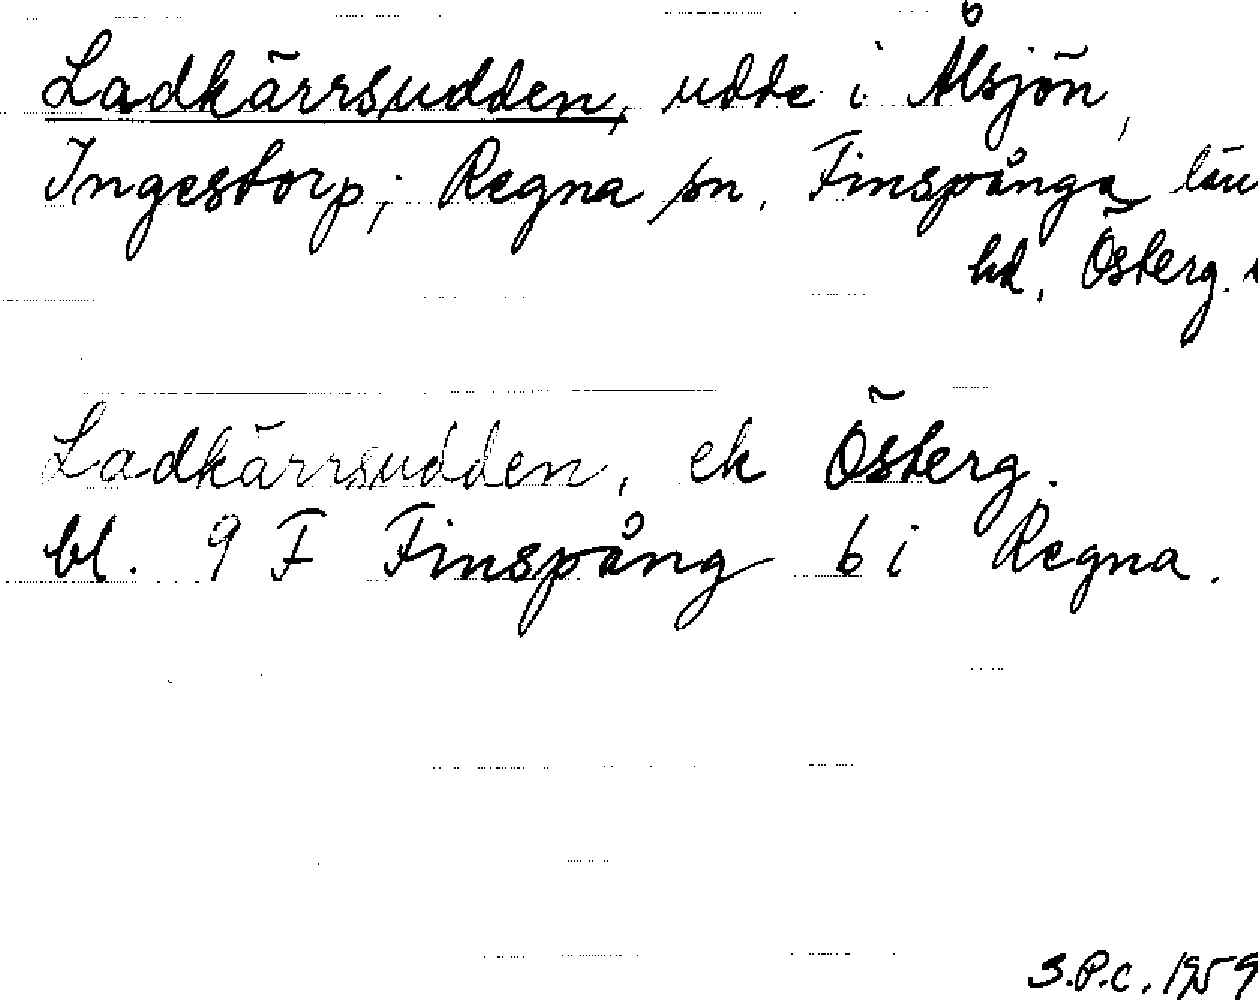 Ladkärrsudden, udde i Ålsjön,
Ingestorp; Regna sn. Finspånga län
hd, Österg.
Ladkärrsudden, ek Österg.
bl. 9 F Finspång b i Regna.
S.P.C. 1959